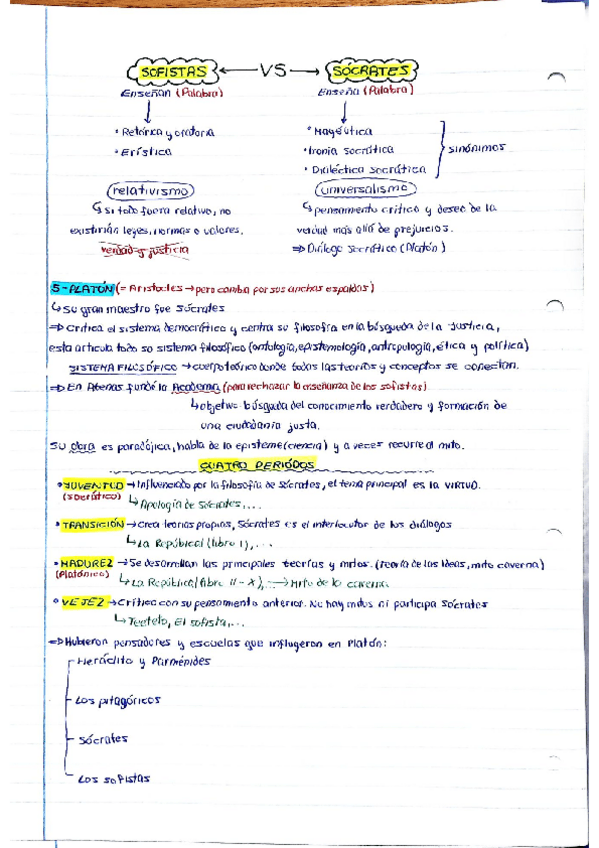 SOFISTAS ←VS→ SÓCRATES
Enseñan (Palabra) Enseña (Palabra)
• Retórica y oratoria • Mayéutica
• Erística • Ironia socrática
• Dialéctica socrática
sinónimos
relativismo universalismo
↳ si todo fuera relativo, no ↳ pensamiento crítico y deseo de la
existirían leyes, normas o valores. verdad más allá de prejuicios.
verdad y justicia ⇒ Diálogo socrático (Platón)
5-PLATÓN (= Aristocles → pero cambia por sus anchas espaldas)
↳ Su gran maestro fue Sócrates
⇒ Critica el sistema democrático y centra su filosofía en la búsqueda de la justicia,
esta articula todo su sistema filosófico (ontología, epistemología, antropología, ética y política)
SISTEMA FILOSÓFICO → cuerpo teórico donde todas las teorías y conceptos se conectan.
⇒ En Atenas fundó la Academia (para rechazar la enseñanza de los sofistas)
↳ objetivo búsqueda del conocimiento verdadero y formación de
una ciudadanía justa.
Su obra es paradójica, habla de la episteme (ciencia) y a veces recurre al mito.
CUATRO PERIÓDOS
• JUVENTUD → Influenciado por la filosofía de Sócrates, el tema principal es la VIRTUD.
(socrático) ↳ Apología de Sócrates,...
• TRANSICIÓN → Crea teorías propias, Sócrates es el interlocutor de los diálogos
↳ La República (libro I), ...
• MADUREZ → Se desarrollan las principales teorías y mitos. (Teoría de las Ideas, mito caverna)
(Platónico) ↳ La República (libro II-X),... → Mito de la caverna
• VEJEZ → Crítica con su pensamiento anterior. No hay mitos ni participa Sócrates
↳ Teeteto, El sofista,...
⇒ Hubieron pensadores y escuelas que influyeron en Platón:
Heráclito y Parménides
Los pitagóricos
Sócrates
Los sofistas